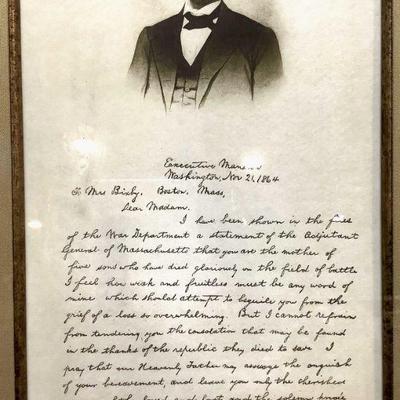 Executive Mansion
Washington, Nov 21, 1864
To Mrs Bixby, Boston, Mass,
Dear Madam.
I have been shown in the files
of the War Department a statement of the Adjutant
General of Massachusetts that you are the mother of
five sons who have died gloriously on the field of battle
I feel how weak and fruitless must be any word of
mine which should attempt to beguile you from the
grief of a loss so overwhelming. But I cannot refrain
from tendering you the consolation that may be found
in the thanks of the republic they died to save I
pray that our Heavenly Father may assuage the anguish
of your bereavement, and leave you only the cherished
loved and lost, and the solemn pride